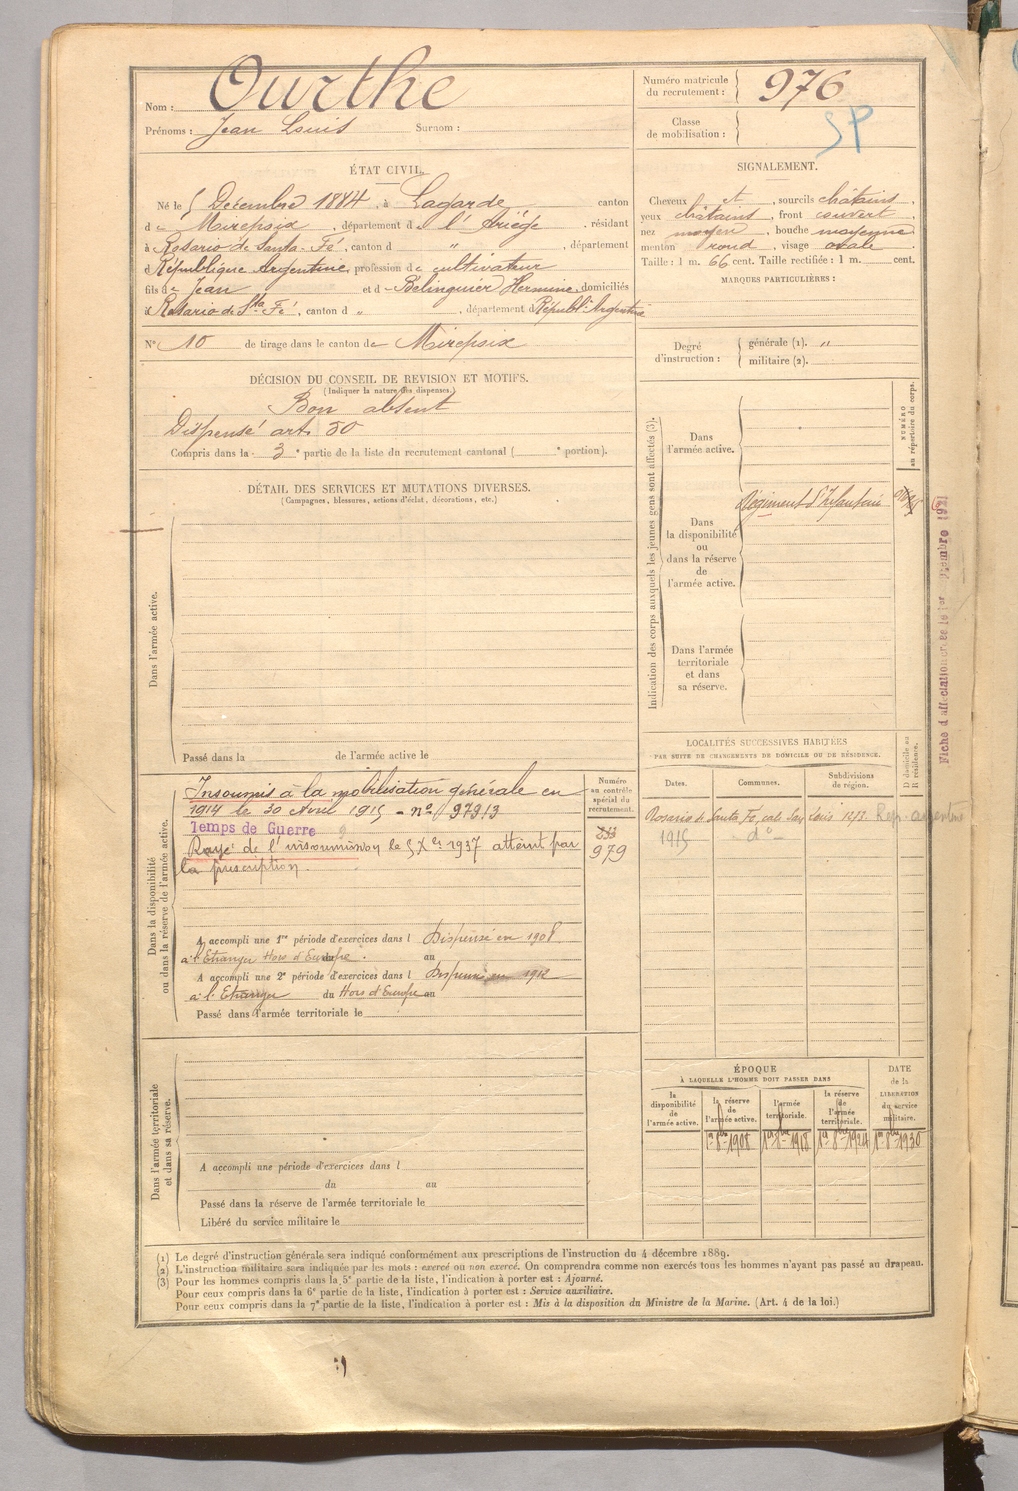 Nom : Ourthe
Prénoms : Jean Louis Surnom :
Numéro matricule du recrutement : 976
Classe de mobilisation :
SP
ÉTAT CIVIL.
Né le 5 Décembre 1884, à Lagarde, canton
d e Mirepoix, département d e l'Ariège, résidant
à Rosario de Santa-Fé, canton d " , département
d République Argentine, profession de cultivateur
fils de Jean et de Bélinguier Hermine, domiciliés
à Rosario de Sta Fé, canton d " , département d Républ. Argentine
N° 10 de tirage dans le canton de Mirepoix
SIGNALEMENT.
Cheveux et , sourcils châtains,
yeux châtains, front couvert,
nez moyen, bouche moyenne
menton rond, visage ovale
Taille : 1 m. 66 cent. Taille rectifiée : 1 m. cent.
MARQUES PARTICULIÈRES :
Degré d'instruction : générale (1). "
militaire (2).
DÉCISION DU CONSEIL DE REVISION ET MOTIFS.
(Indiquer la nature des dispenses.)
Bon absent
Dispensé art. 50
Compris dans la 3e partie de la liste du recrutement cantonal ( e portion).
DÉTAIL DES SERVICES ET MUTATIONS DIVERSES.
(Campagnes, blessures, actions d'éclat, décorations, etc.)
Dans l'armée active.
Passé dans la de l'armée active le
Indication des corps auxquels les jeunes gens sont affectés (3).
NUMÉRO au répertoire du corps.
Dans l'armée active.
Dans la disponibilité ou dans la réserve de l'armée active.
Régiment d'Infanterie
Dans l'armée territoriale et dans sa réserve.
Dans la disponibilité ou dans la réserve de l'armée active.
Insoumis à la mobilisation générale en
1914 le 30 Avril 1915 - n° 97913
Temps de Guerre
Rayé de l'insoumission le 5 Xbre 1937 atteint par
la prescription.
Numéro au contrôle spécial du recrutement.
979
A accompli une 1re période d'exercices dans l Dispensé en 1908
à l'Etranger Hors d'Europe. au
A accompli une 2e période d'exercices dans l Dispensé en 1912
à l'Etranger du Hors d'Europe au
Passé dans l'armée territoriale le
LOCALITÉS SUCCESSIVES HABITÉES
PAR SUITE DE CHANGEMENTS DE DOMICILE OU DE RÉSIDENCE.
Dates. Communes. Subdivisions de région. D domicile ou R résidence.
Rosario de Santa Fe, cale San Luis 1272 Rep. argentine
1915 - do -
ÉPOQUE
À LAQUELLE L'HOMME DOIT PASSER DANS
la disponibilité de l'armée active.
la réserve de l'armée active.
l'armée territoriale.
la réserve de l'armée territoriale.
DATE de la LIBÉRATION du service militaire.
1er 8bre 1908 1er 8bre 1918 1er 8bre 1924 1er 8bre 1930
Dans l'armée territoriale et dans sa réserve.
A accompli une période d'exercices dans l
du au
Passé dans la réserve de l'armée territoriale le
Libéré du service militaire le
(1) Le degré d'instruction générale sera indiqué conformément aux prescriptions de l'instruction du 4 décembre 1889.
(2) L'instruction militaire sera indiquée par les mots : exercé ou non exercé. On comprendra comme non exercés tous les hommes n'ayant pas passé au drapeau.
(3) Pour les hommes compris dans la 5e partie de la liste, l'indication à porter est : Ajourné.
Pour ceux compris dans la 6e partie de la liste, l'indication à porter est : Service auxiliaire.
Pour ceux compris dans la 7e partie de la liste, l'indication à porter est : Mis à la disposition du Ministre de la Marine. (Art. 4 de la loi.)